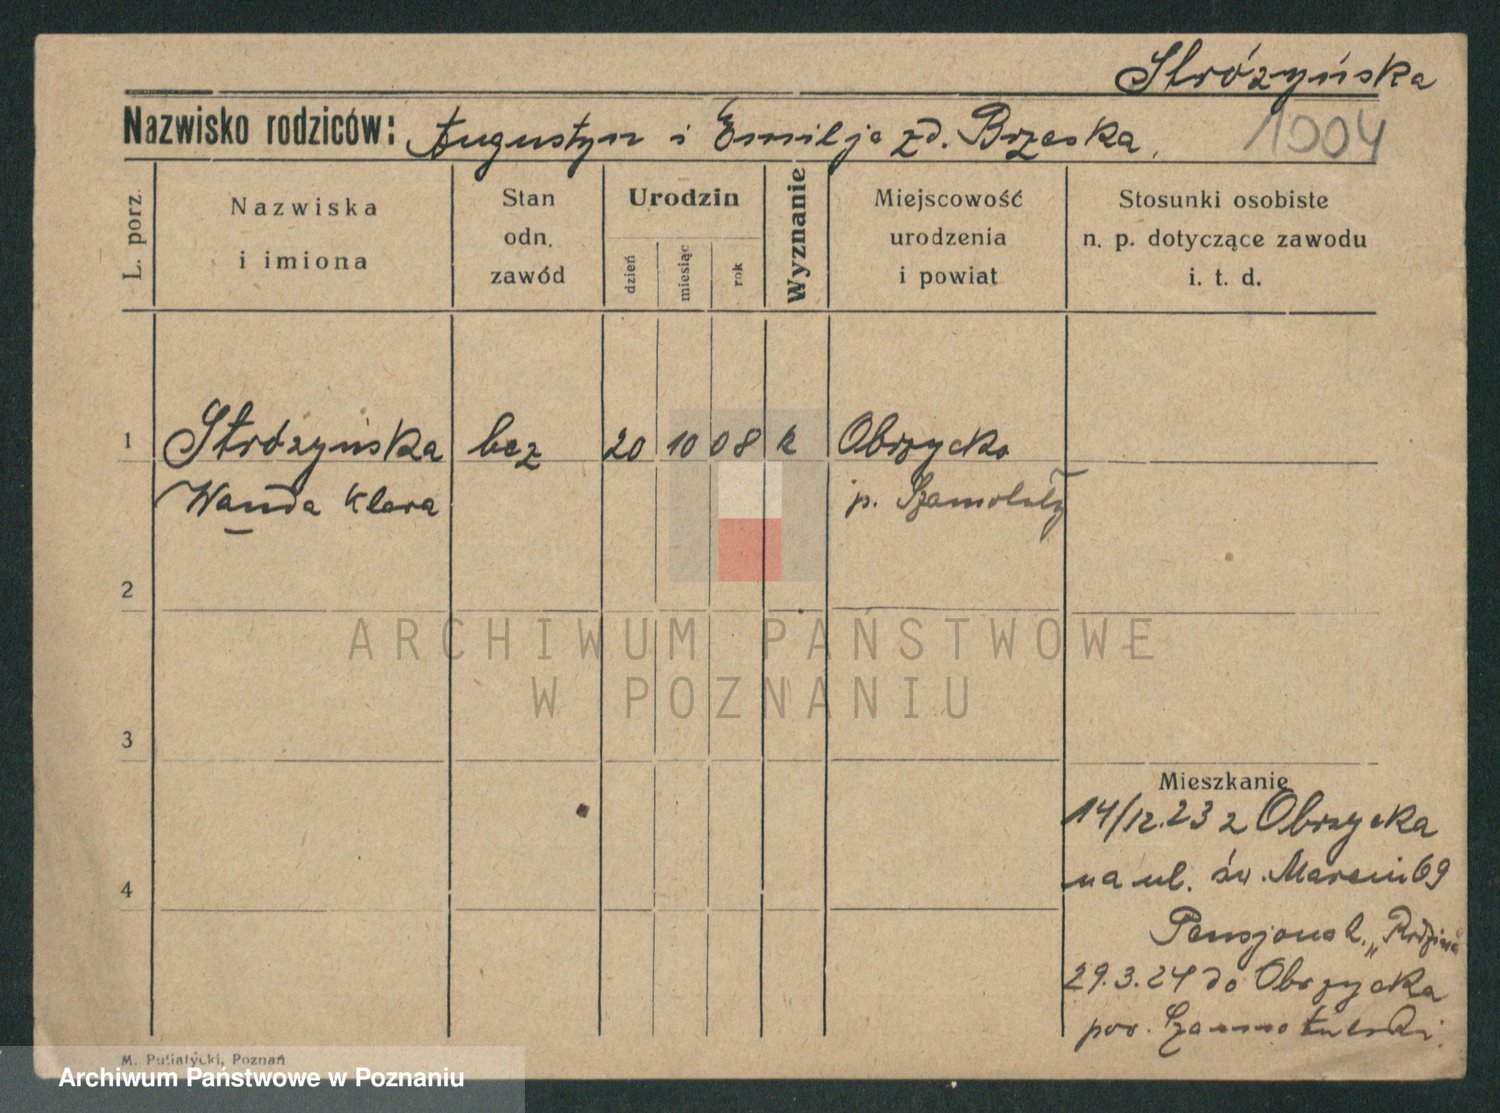 Stróżyńska
Nazwisko rodziców: Augustyn i Emilja zd. Brzeska.
1904
L. porz.
Nazwiska
i imiona
Stan
odn.
zawód
Urodzin
dzień
miesiąc
rok
Wyznanie
Miejscowość
urodzenia
i powiat
Stosunki osobiste
n. p. dotyczące zawodu
i. t. d.
1 Stróżyńska bez 20 10 08 k Obrzycko
Wanda Klara p. Szamotuły
2
ARCHIWUM PAŃSTWOWE
W POZNANIU
3
Mieszkanie
14/12.23 z Obrzycka
4
na ul. św. Marcin 69
Pensjonat „Rodzina
29.3.24 do Obrzycka
pow. Szamotulski.
M. Putiatycki, Poznań
Archiwum Państwowe w Poznaniu